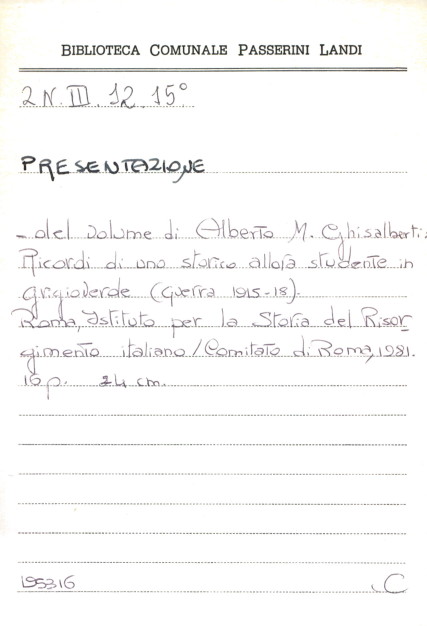 BIBLIOTECA COMUNALE PASSERINI LANDI
2 N. III. 12. 15°
PRESENTAZIONE
- del volume di Alberto M. Ghisalberti:
Ricordi di uno storico allora studente in
grigioverde (Guerra 1915-18).
Roma, Istituto per la Storia del Risor-
gimento italiano/Comitato di Roma, 1981.
16 p. 24 cm.
195316 C